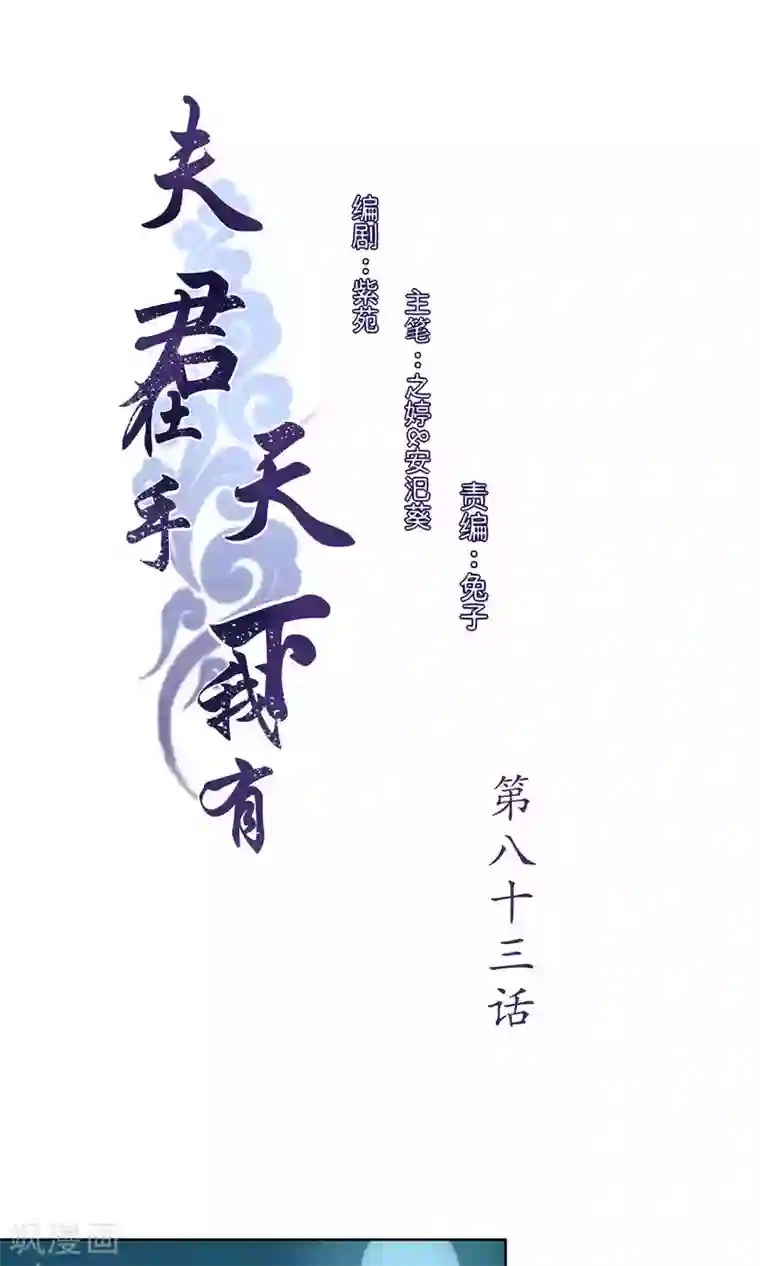 夫君在手
天下我有
编剧：紫苑
主笔：之婷&安汜葵
责编：兔子
第八十三话
飒漫画